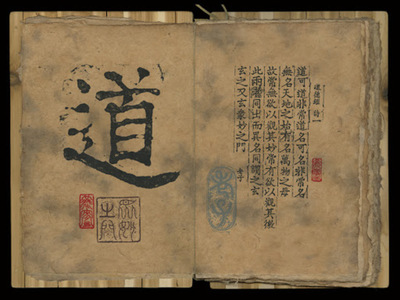 道
衆妙之門
道德經 詩一
道可道非常道名可名非常名
無名天地之始有名萬物之母
故常無欲以觀其妙常有欲以觀其徼
此兩者同出而異名同謂之玄
玄之又玄衆妙之門
老子
老子